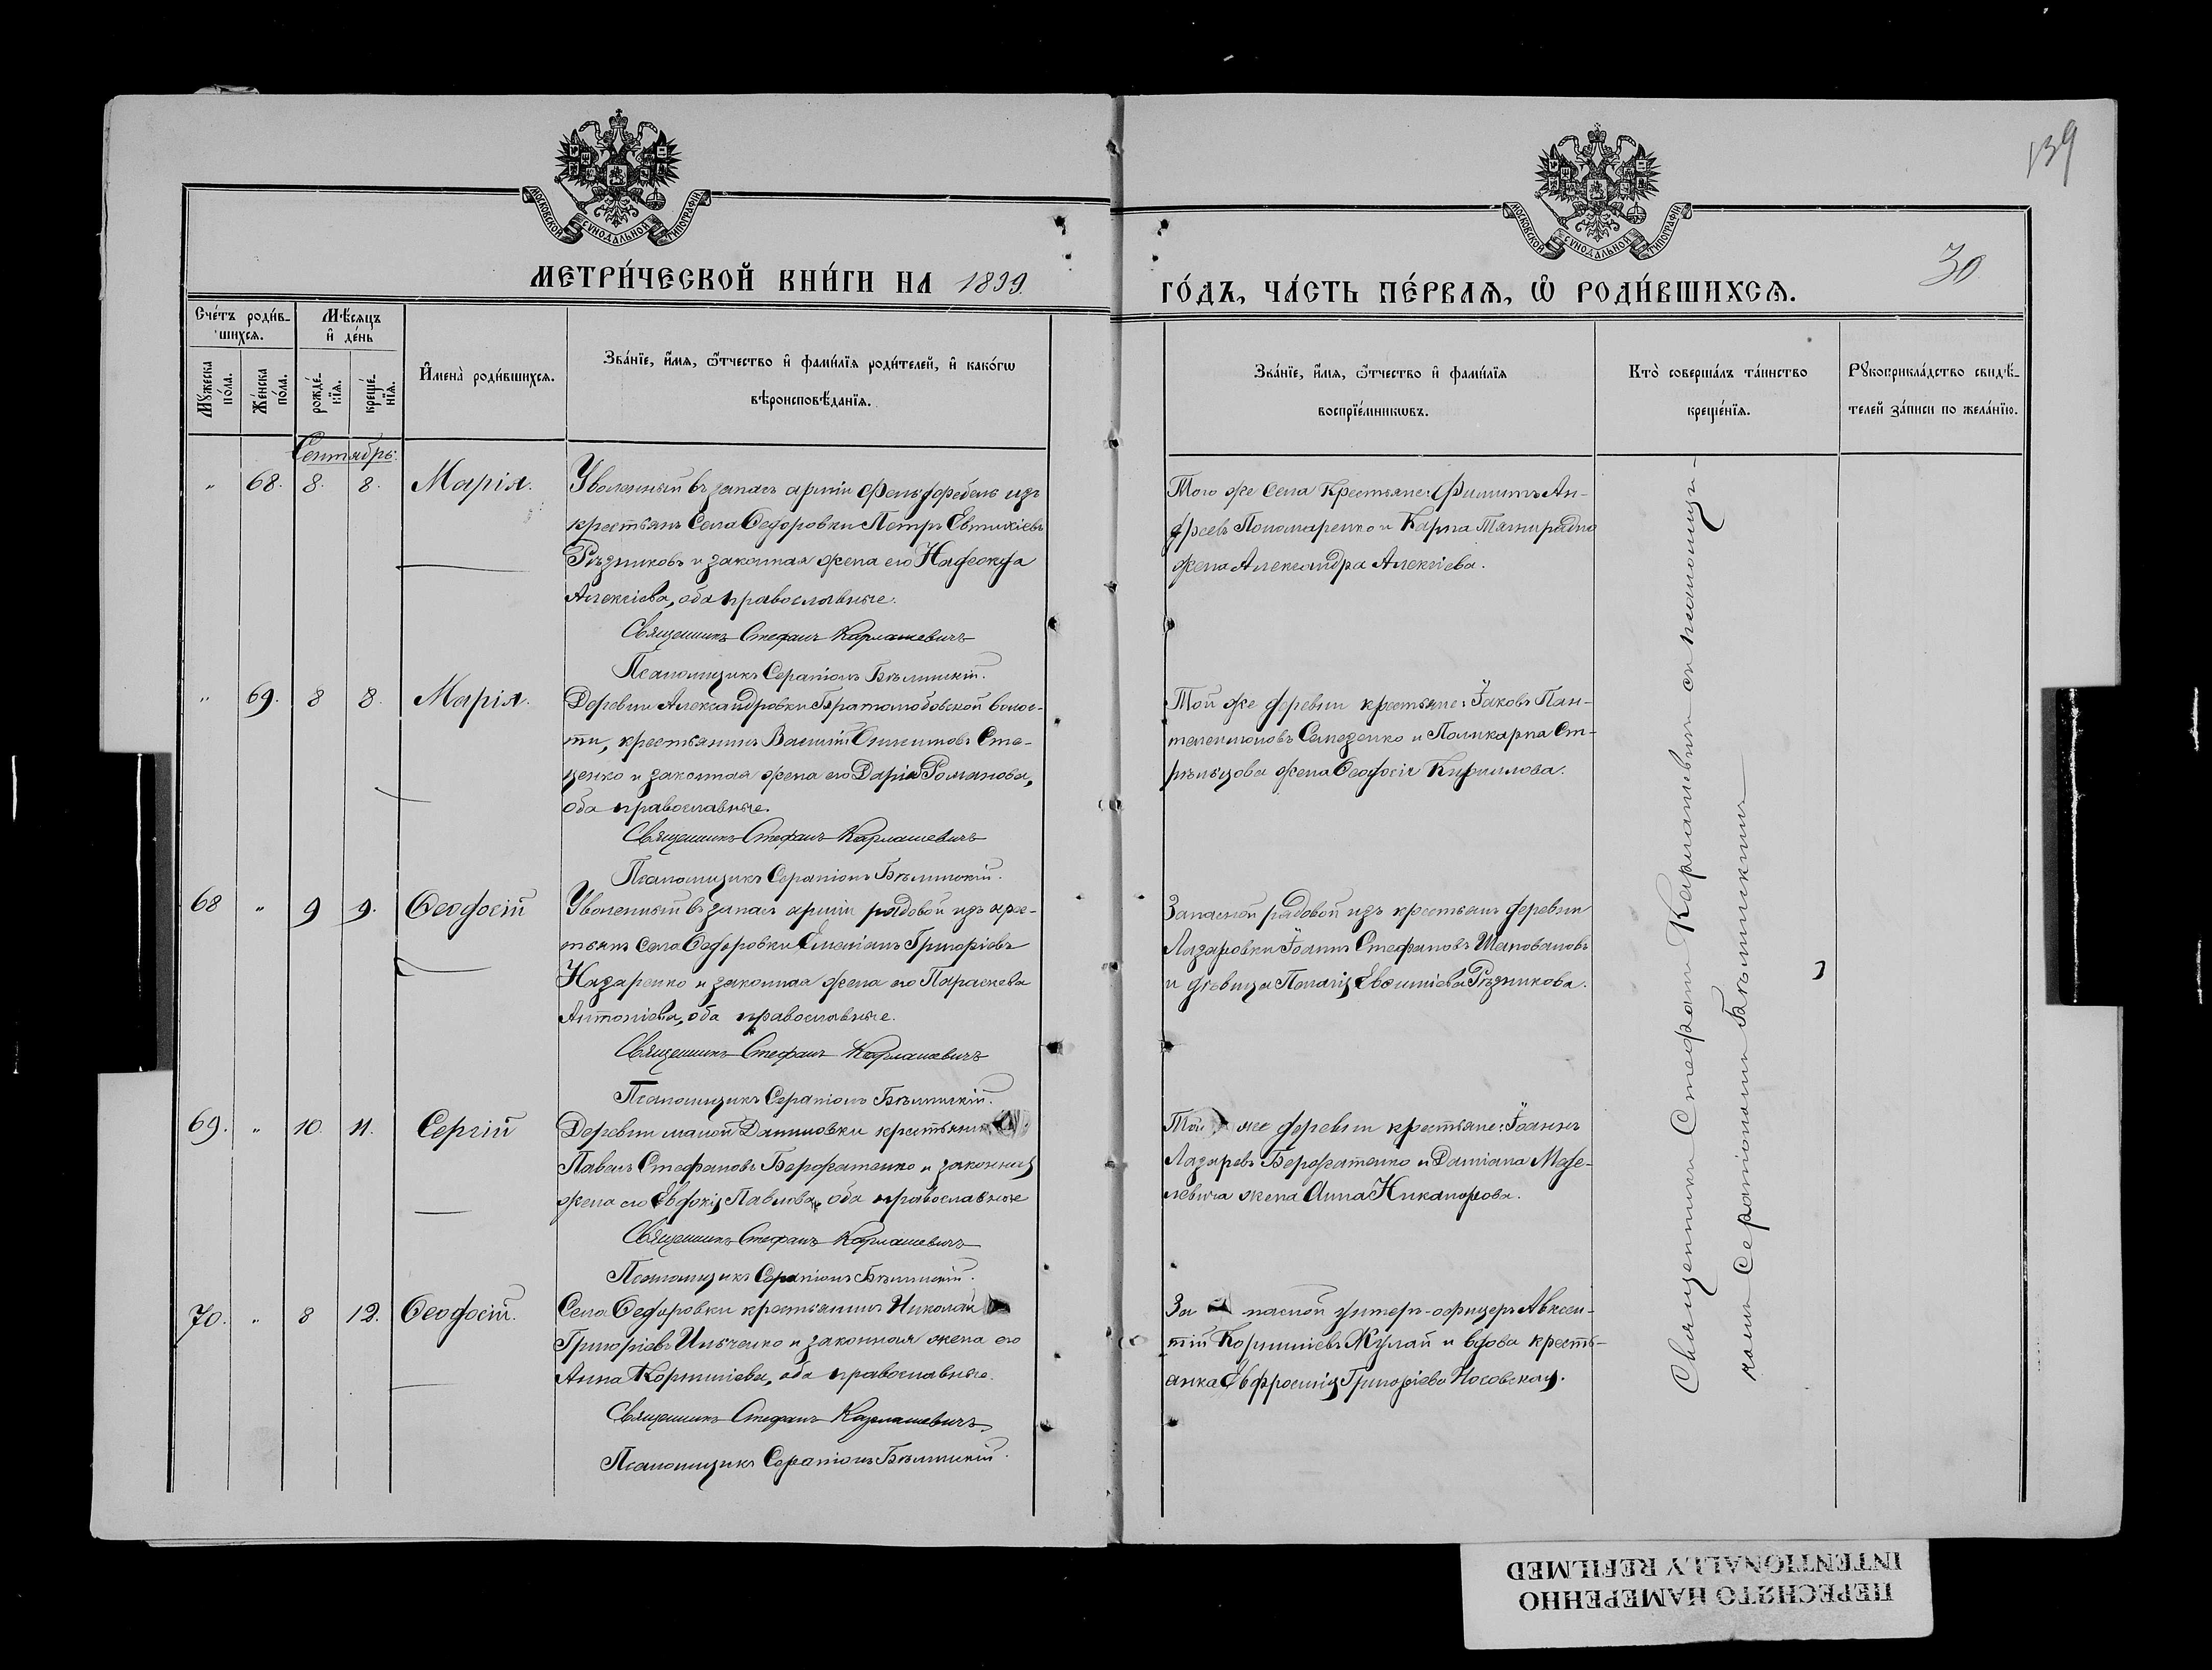 139
МОСКОВСКОЙ СѴНОДАЛЬНОЙ ТИПОГРАФІИ
МОСКОВСКОЙ СѴНОДАЛЬНОЙ ТИПОГРАФІИ
МЕТРИ́ЧЕСКОЙ КНИ́ГИ НА 1899
ГО́ДЪ, ЧА́СТЬ ПЕ́РВАѦ, Ѡ РОДИ́ВШИХСѦ.
30
Сче́тъ роди́в-
шихсѧ.
Мѣ́сѧцъ
и҆ де́нь
Мꙋ́жеска
по́ла.
Же́нска
по́ла.
рожде́-
нїѧ.
креще́-
нїѧ.
И҆мена̀ роди́вшихсѧ.
Зва́нїе, и҆́мѧ, ѻ҆́тчество и҆ фами́лїѧ роди́телей, и҆ како́гѡ
вѣроисповѣ́данїѧ.
Зва́нїе, и҆́мѧ, ѻ҆́тчество и҆ фами́лїѧ
воспрїе́мникѡвъ.
Кто̀ соверша́лъ та́инство
креще́нїѧ.
Рꙋкоприкла́дство свидѣ́-
телей за́писи по жела́нїю.
Сентябрь.
" 68. 8. 8. Марія.
Уволенный въ запасъ арміи фельдфебель изъ
крестьянъ села Ѳедоровки Петръ Евтихіевъ
Рѣзниковъ и законная жена его
Алексіева, оба православные.
Священникъ Стефанъ Карпашевичъ
Псаломщикъ Серапіонъ Бѣлинскій.
Того же села крестьяне: Филиппъ Ан-
дреевъ Пономаренко и Карпа
жена Александра Алексіева.
" 69. 8 8. Марія.
Деревни Александровки Братолюбовской волос-
ти, крестьянинъ Василій Сте-
ценко и законная жена его Дарія Романова,
оба православные.
Священникъ Стефанъ Карпашевичъ
Псаломщикъ Серапіонъ Бѣлинскій.
Той же деревни крестьяне: Іаковъ Пан-
телеимоновъ и Поликарпа Ст-
рѣльцова жена Ѳеодосія Кириллова.
68 " 9 9. Ѳеодосій
Уволенный въ запасъ арміи рядовой изъ крес-
тьянъ села Ѳедоровки Емеліанъ Григоріевъ
Назаренко и законная жена его Параскева
Антоніева, оба православные.
Священникъ Стефанъ Карпашевичъ
Псаломщикъ Серапіонъ Бѣлинскій.
Запасной рядовой изъ крестьянъ деревни
Лазаровки Іоаннъ Стефановъ Шаповаловъ
и дѣвица Пелагія Рѣзникова.
69. " 10. 11. Сергій
Деревни малой Даниловки крестьянинъ
Павелъ Стефановъ и законная
жена его Евдокія Павлова, оба православные
Священникъ Стефанъ Карпашевичъ
Псаломщикъ Серапіонъ Бѣлинскій.
Той же деревни крестьяне: Іоаннъ
Лазаревъ и Даміана
жена Анна Никанорова.
70. " 8 12. Ѳеодосій.
Села Ѳедоровки крестьянинъ Николай
Григоріевъ Ильченко и законная жена его
Анна Корниліева, оба православные.
Священникъ Стефанъ Карпашевичъ
Псаломщикъ Серапіонъ Бѣлинскій.
За пасной унтеръ-офицеръ Авксен-
тій Корниліевъ Жулай и вдова кресть-
анка Евфросинія Григоріева Носовская.
Священникъ Стефанъ Карпашевичъ съ псаломщи-
комъ Серапіономъ Бѣлинскимъ
ПЕРЕСНЯТО НАМЕРЕННО
INTENTIONALLY REFILMED